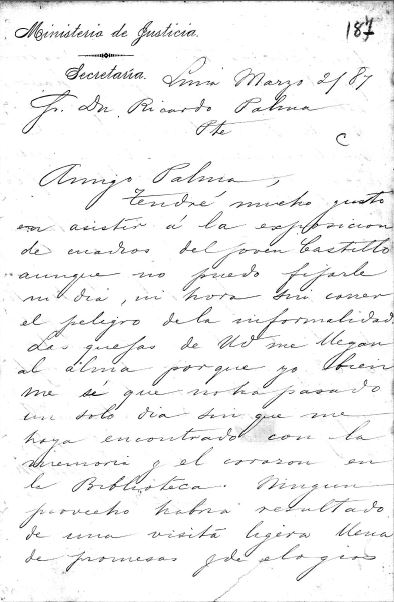 Ministerio de Justicia.
187
Secretaría. Lima Marzo 2/87
Sr. Dn. Ricardo Palma
Pte
C
Amigo Palma,
Tendré mucho gusto
en asistir á la exposicion
de cuadros del joven Castillo
aunque no puedo fijarle
ni dia, ni hora sin correr
el peligro de la informalidad.
Las quejas de Ud me llegan
al alma porque yo bien
me sé que no ha pasado
un solo dia sin que me
haya encontrado con la
memoria y el corazon en
la Biblioteca. Ningun
provecho habria resultado
de una visita ligera llena
de promesas y de elogios